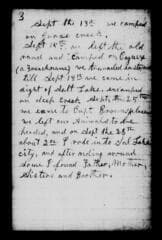 Sept the 13th we camped
on Goose creek.
Sept 14th we left the old
road and camped on Casure
(a Frenchman) we traveled
till Sept 19th we came in
sight of Salt Lake, encamped
on deep creek, Sept the 25th
we came to Capt. Browns place
we left our animals to be
herded, and on Sept the 28th
about 2 P.M. I rode into Salt Lake
city, and after riding around
some I found Father, Mother,
Sisters and Brother.